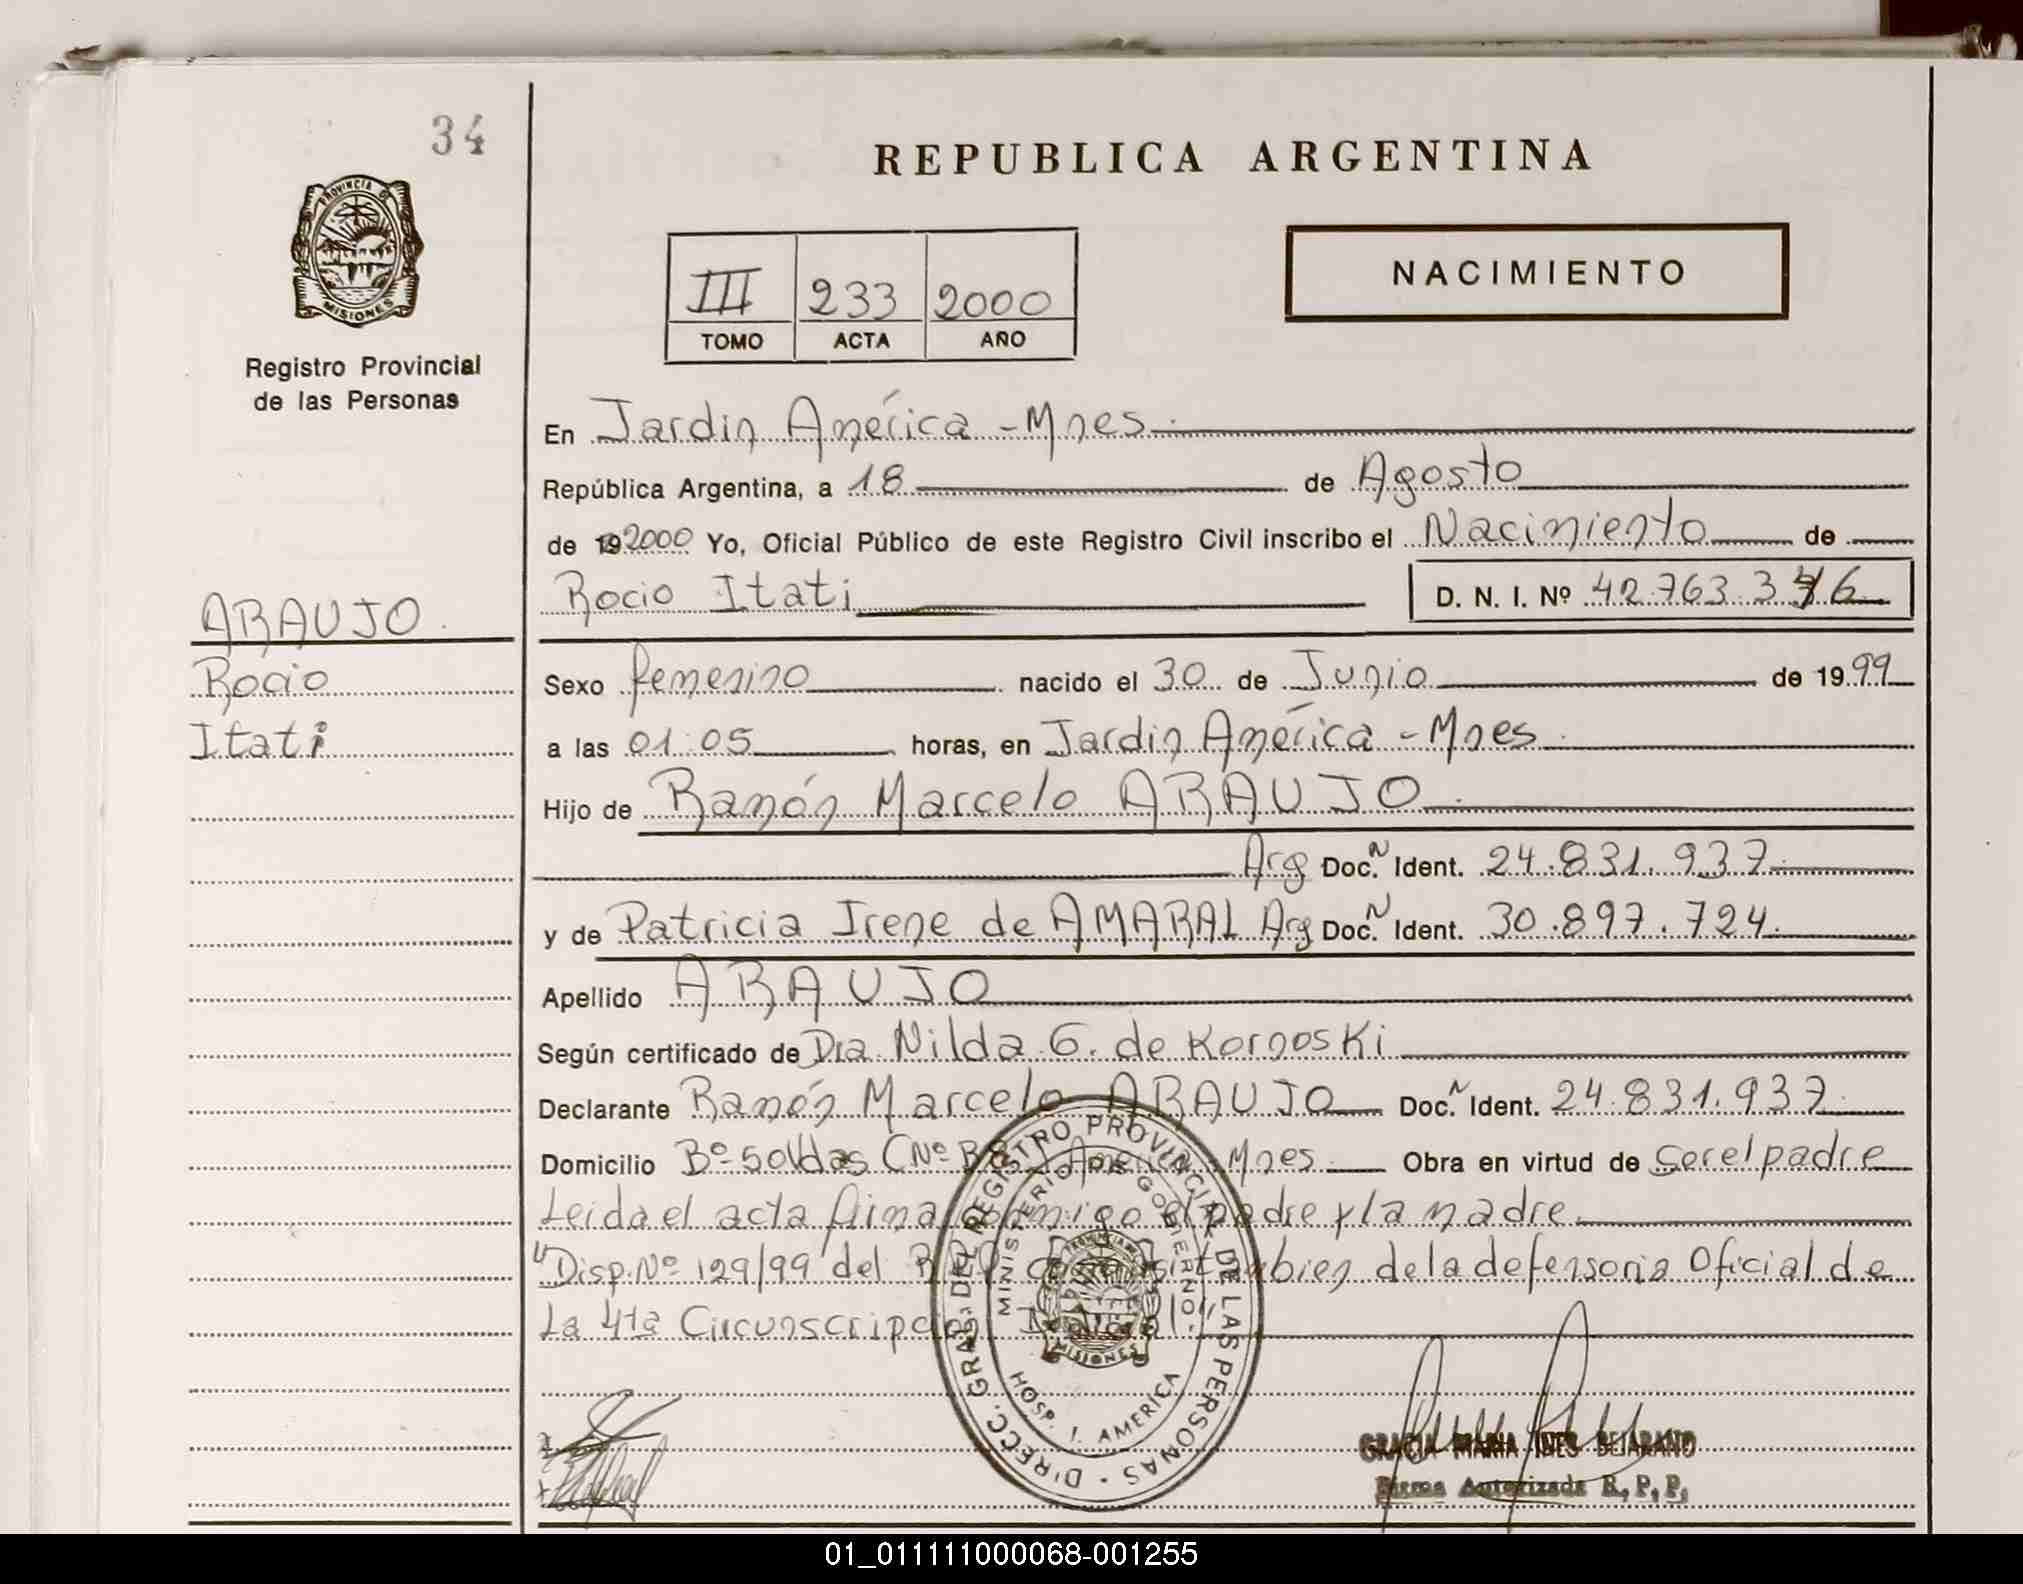 34
PROVINCIA DE
MISIONES
Registro Provincial
de las Personas
ARAUJO
Rocio
Itati
REPUBLICA ARGENTINA
III 233 2000
TOMO ACTA AÑO
NACIMIENTO
En Jardin América - Mnes.
República Argentina, a 18 de Agosto
de 2000 Yo, Oficial Público de este Registro Civil inscribo el Nacimiento de
Rocio Itati D. N. I. Nº 42.763.3 6
Sexo femenino nacido el 30 de Junio de 1999
a las 01:05 horas, en Jardin América - Mnes.
Hijo de Ramón Marcelo ARAUJO
Arg Doc. N Ident. 24.831.937
y de Patricia Irene de AMARAL Arg Doc. N Ident. 30.897.724.
Apellido ARAUJO
Según certificado de Dra Nilda G. de Kornoski
Declarante Ramón Marcelo ARAUJO Doc. N Ident. 24.831.937
Domicilio Bº Mnes Obra en virtud de ser el padre
Leida el acta firma conmigo el padre y la madre.
"Disp. Nº 129/99 del tambien de la defensoria Oficial de
La 4ta Circunscripción
DIRECC. GRAL. DEL REGISTRO PROVINCIAL DE LAS PERSONAS
MINISTERIO DE GOBIERNO
MISIONES
HOSP. J. AMERICA
GRACIA MARIA INES BEJARANO
Firma Autorizada R. P. P.
01_011111000068-001255